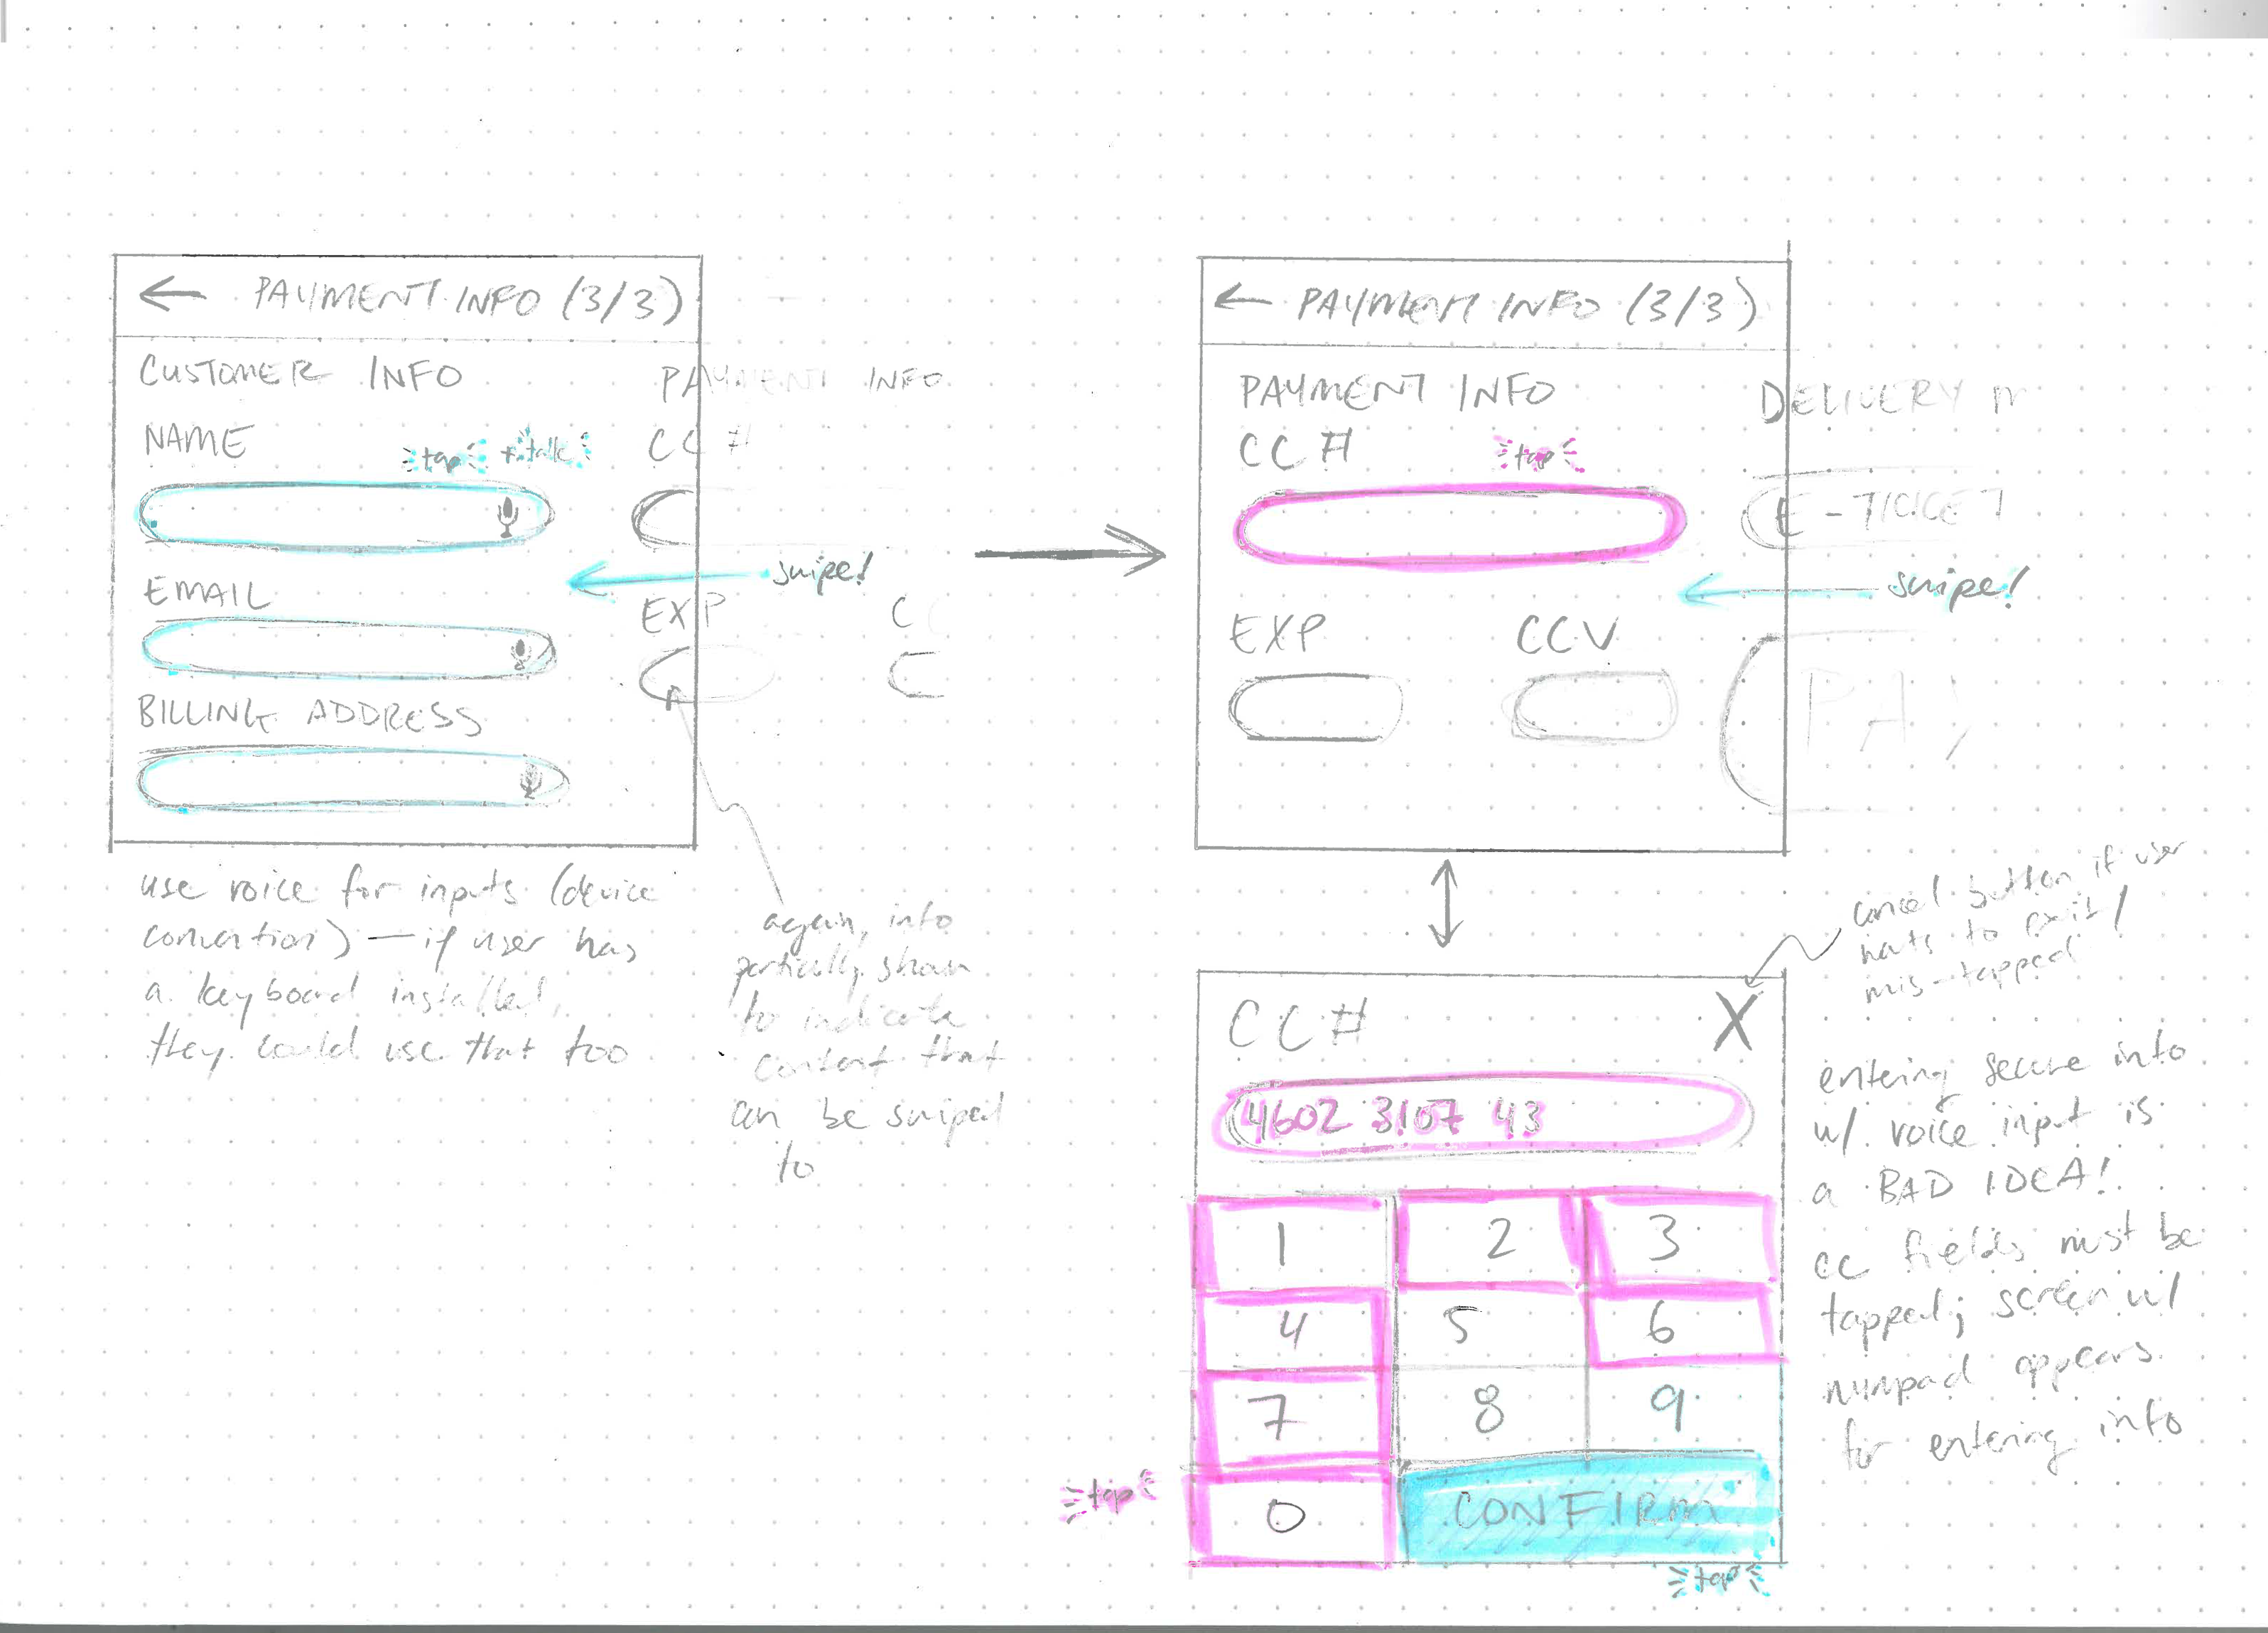 ← PAYMENT INFO (3/3)
CUSTOMER INFO
NAME
tap + talk
EMAIL
BILLING ADDRESS
PAYMENT INFO
CC #
swipe!
EXP
C
use voice for inputs (device
convention) — if user has
a keyboard installed,
they could use that too
again, info
partially shown
to indicate
content that
can be swiped
to
← PAYMENT INFO (3/3)
PAYMENT INFO
CC #
tap
EXP CCV
DELIVERY M
E-TICKET
swipe!
PAY
cancel button if user
wants to exit/
mis-tapped
CC# X
4602 3107 43
1 2 3
4 5 6
7 8 9
0 CONFIRM
tap
tap
entering secure info
w/ voice input is
a BAD IDEA!
cc fields must be
tapped; screen w/
numpad appears
for entering info